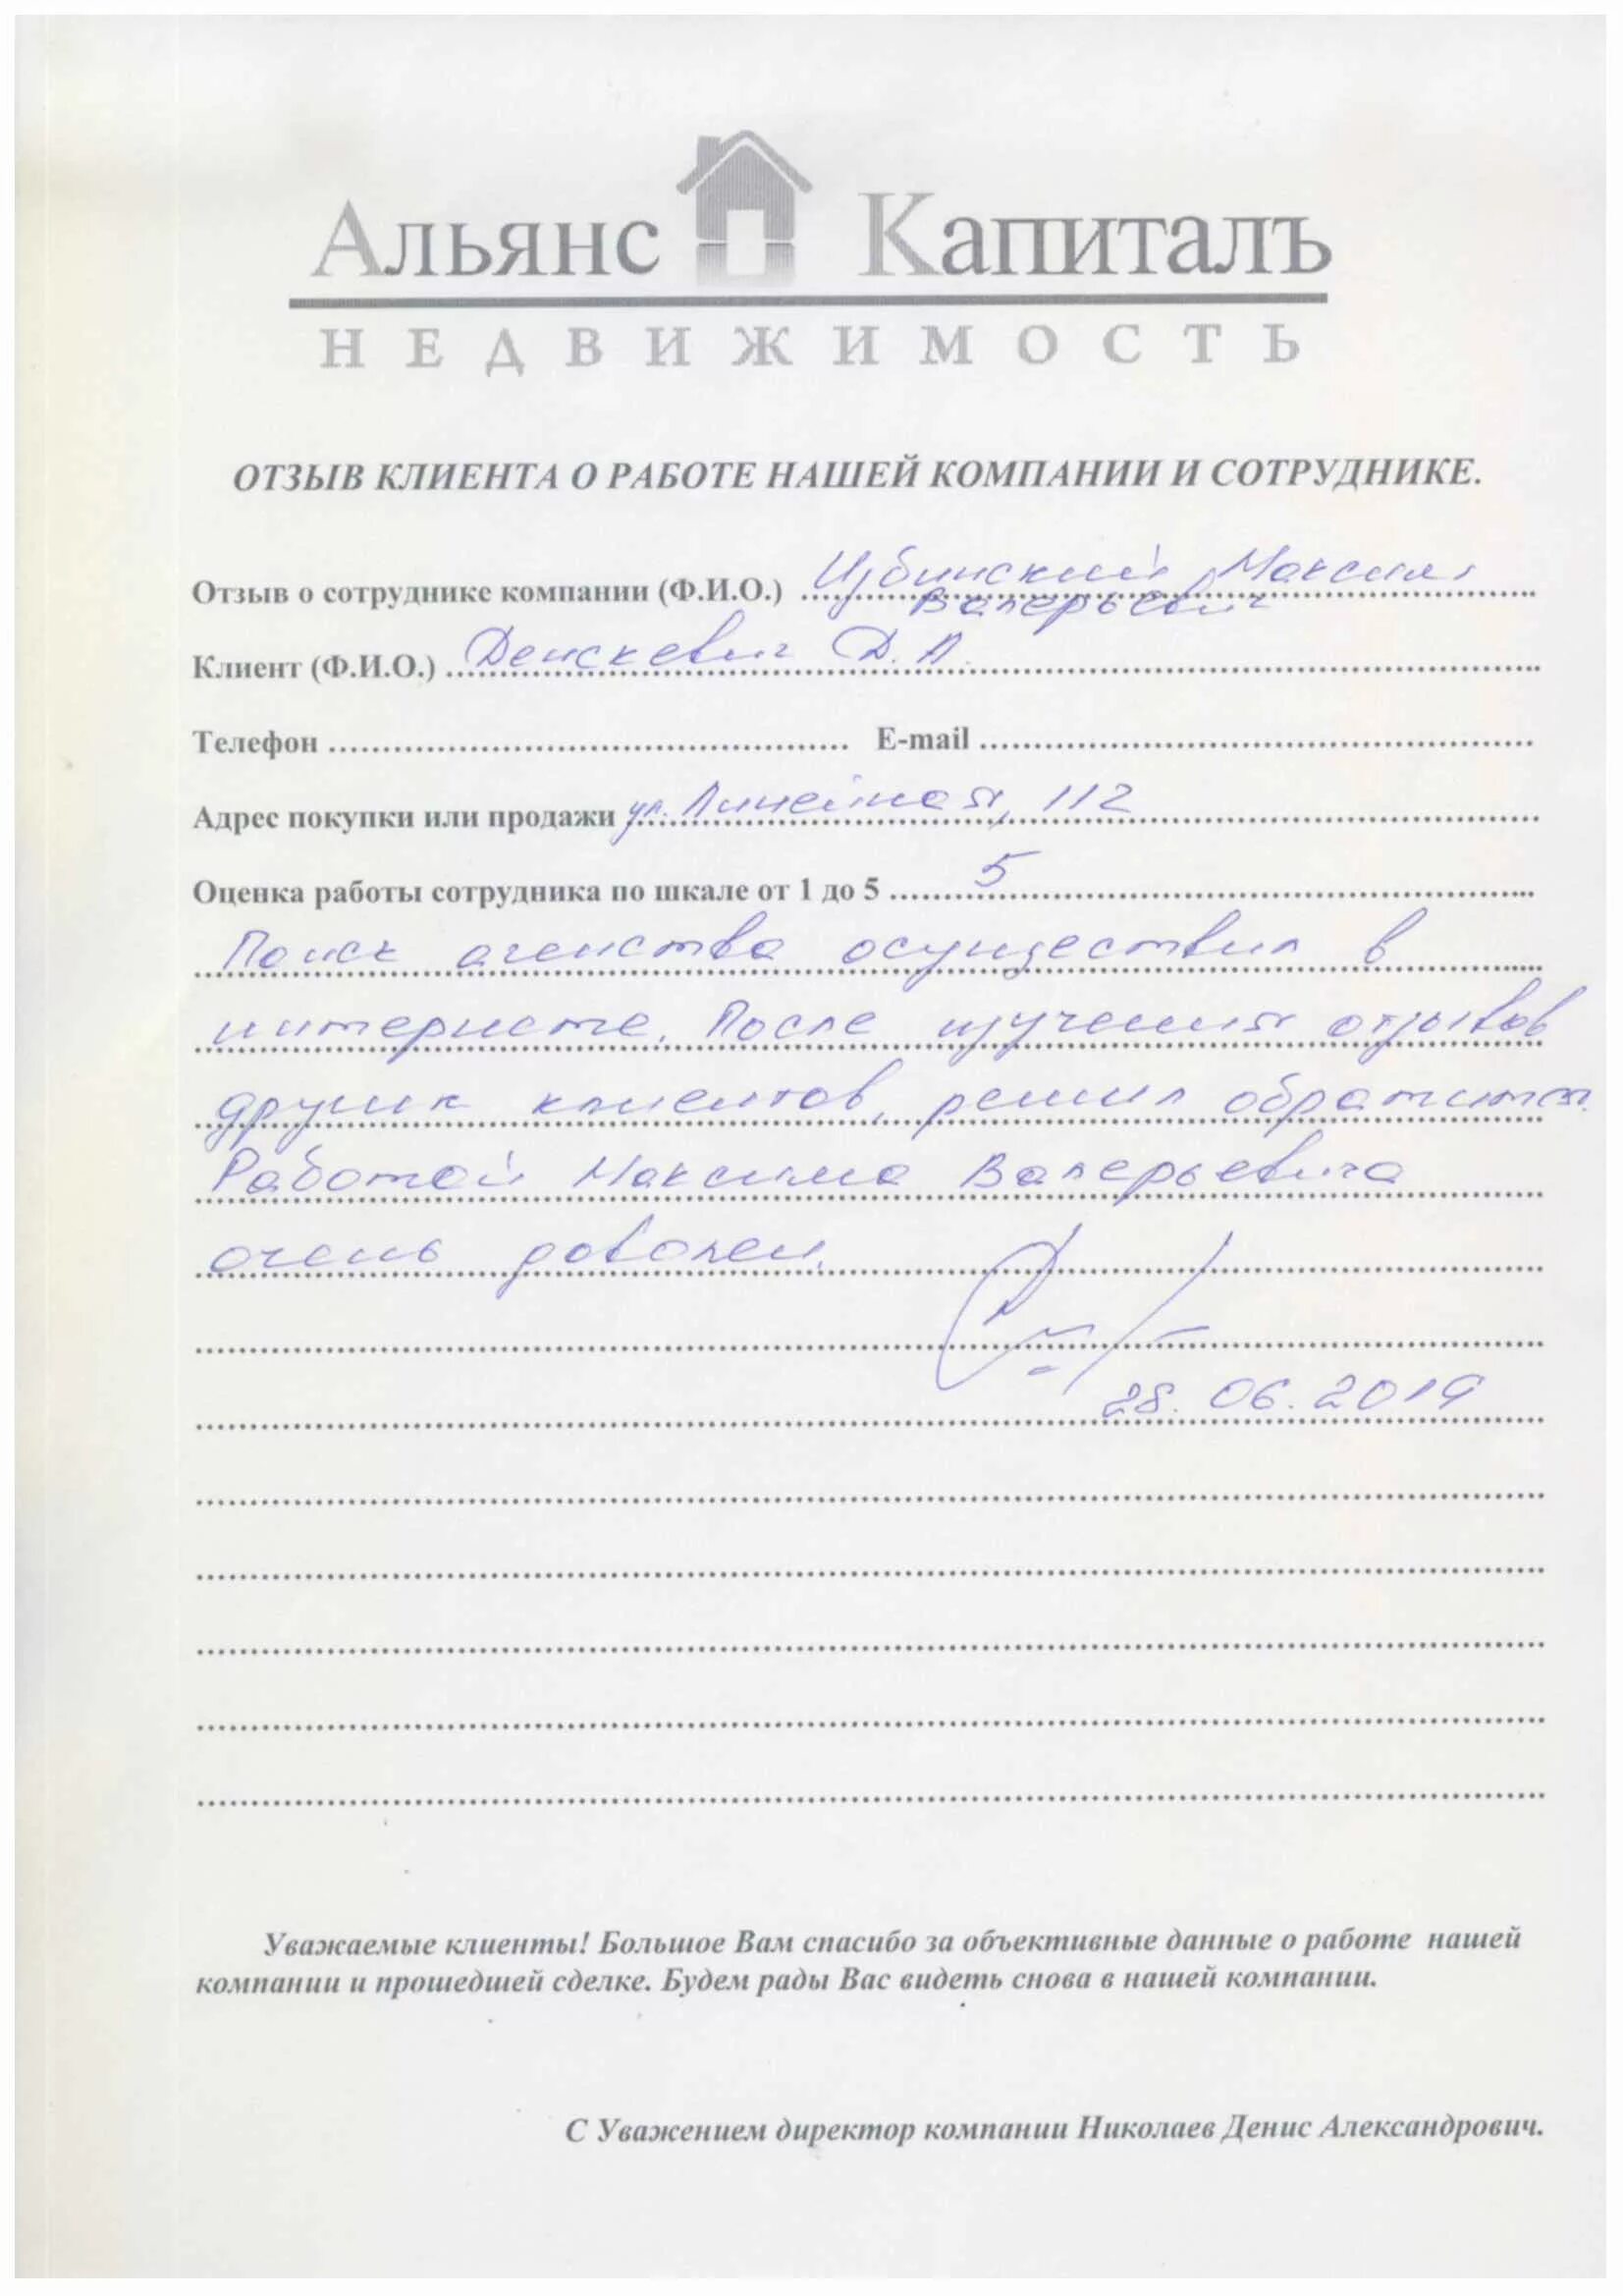 Альянс Капиталъ
НЕДВИЖИМОСТЬ
ОТЗЫВ КЛИЕНТА О РАБОТЕ НАШЕЙ КОМПАНИИ И СОТРУДНИКЕ.
Отзыв о сотруднике компании (Ф.И.О.) Избинский Максим
Валерьевич
Клиент (Ф.И.О.) Денскевич Д.А.
Телефон E-mail
Адрес покупки или продажи ул. Линейная, 112
Оценка работы сотрудника по шкале от 1 до 5 5
Поиск агенства осуществил в
интернете. После изучения отзывов
других клиентов, решил обратится.
Работой Максима Валерьевича
очень доволен.
28.06.2019
Уважаемые клиенты! Большое Вам спасибо за объективные данные о работе нашей
компании и прошедшей сделке. Будем рады Вас видеть снова в нашей компании.
С Уважением директор компании Николаев Денис Александрович.